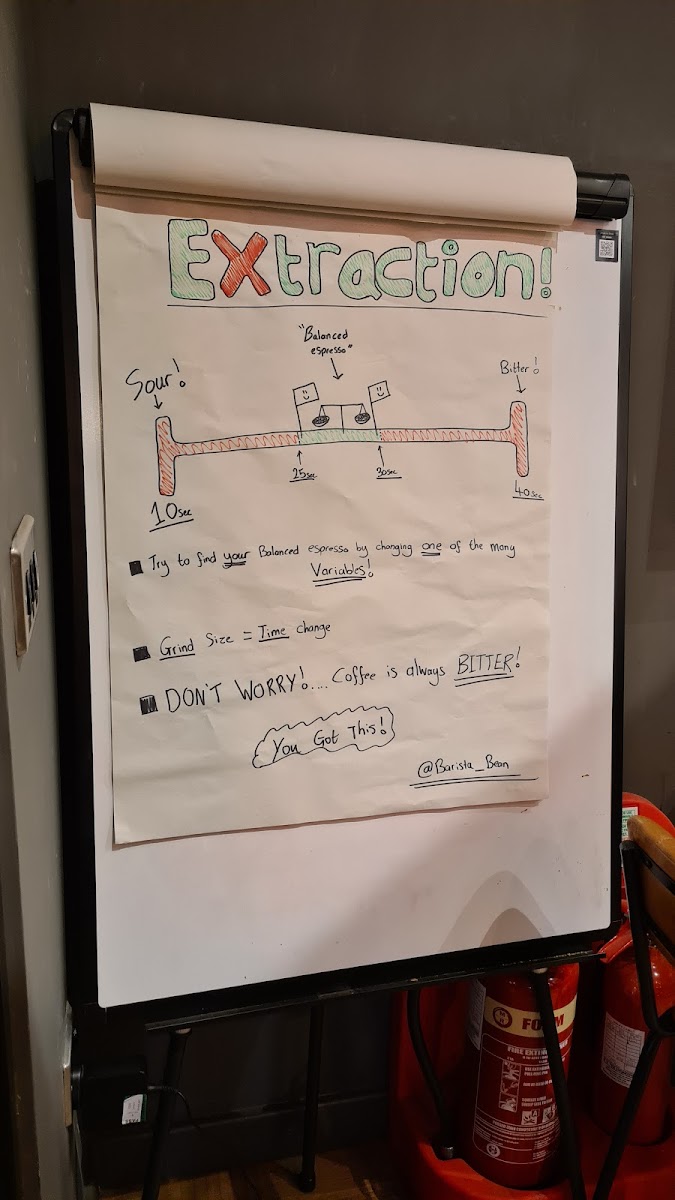 Extraction!
"Balanced
espresso"
Sour!
Bitter!
25sec
30sec
10sec
40sec
Try to find your Balanced espresso by changing one of the many
Variables!
Grind Size = Time change
DON'T WORRY!.... Coffee is always BITTER!
You Got This!
@Barista_Bean
FOAM